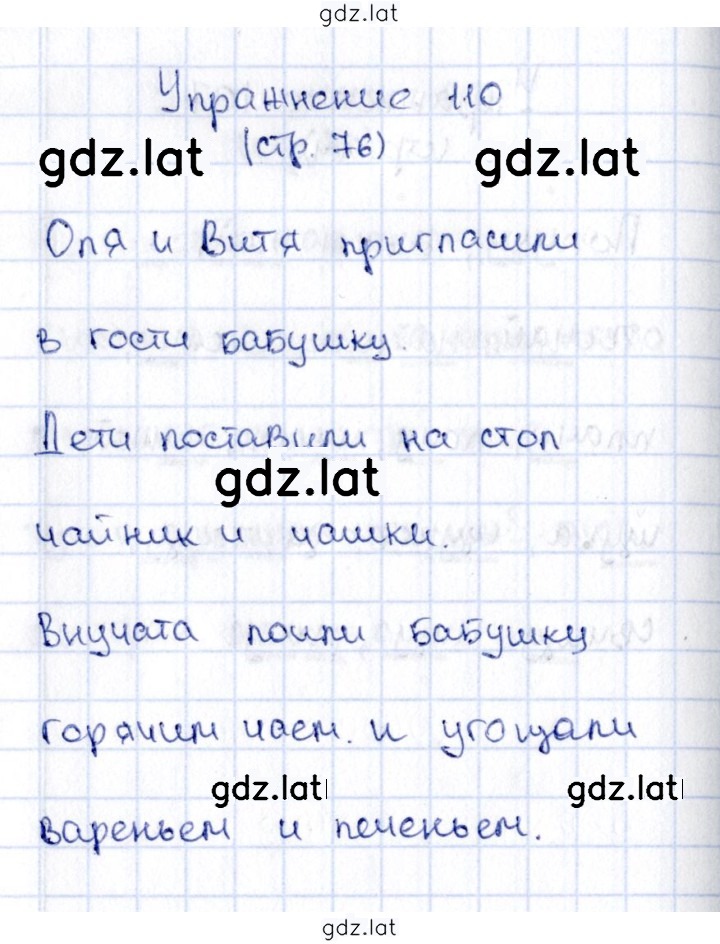 gdz.lat
Упражнение 110
gdz.lat (стр. 76) gdz.lat
Оля и Витя пригласили
в гости бабушку.
Дети поставили на стол
gdz.lat
чайник и чашки.
Внучата поили бабушку
горячим чаем. и угощали
gdz.lat gdz.lat
вареньем и печеньем.
gdz.lat